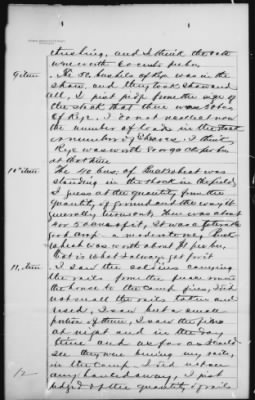 thrashing, and I think the oats
were worth 60 cents per bu
9 item The 50 bushels of Rye was in the
shock, and they took straw and
all, I just judge from the size of
the stack that there was 50 bus
of Rye. I do not recollect now
the number of loads in the stack
or number of shocks. I think
Rye was worth 80 or 90 cts per bu
at that time
10" item The 40 bus. of Buckwheat was
standing in the shock in the field,
I guess at the quantity from the
quantity of ground and the way it
generally turns out. There was about
4 or 5 acres of it, It was a tolerable
good crop - a moderate one, Buck
wheat was worth about $1 per bu,
that is what I always got for it
11, item I saw the soldiers carrying
the rails from the fence near
the house to the camp fires, I did
not see all the rails taken and
used, I saw but a small
portion of them, I saw the fires
at night and in the day
time and as far as I could
see they were burning my rails,
in the camp - I did not see
any hauled away, I just
judged of the quantity of rails
12